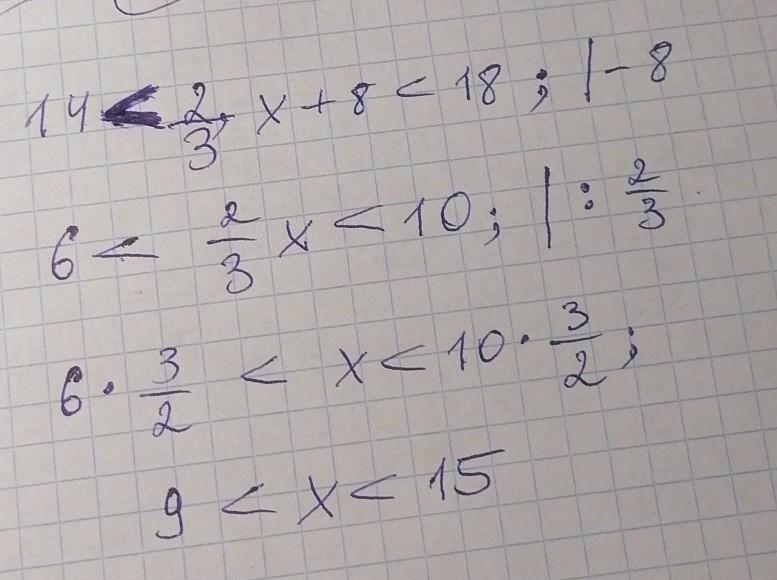 14 < 2/3 x + 8 < 18 ; | - 8
6 < 2/3 x < 10 ; | : 2/3
6 · 3/2 < x < 10 · 3/2 ;
9 < x < 15